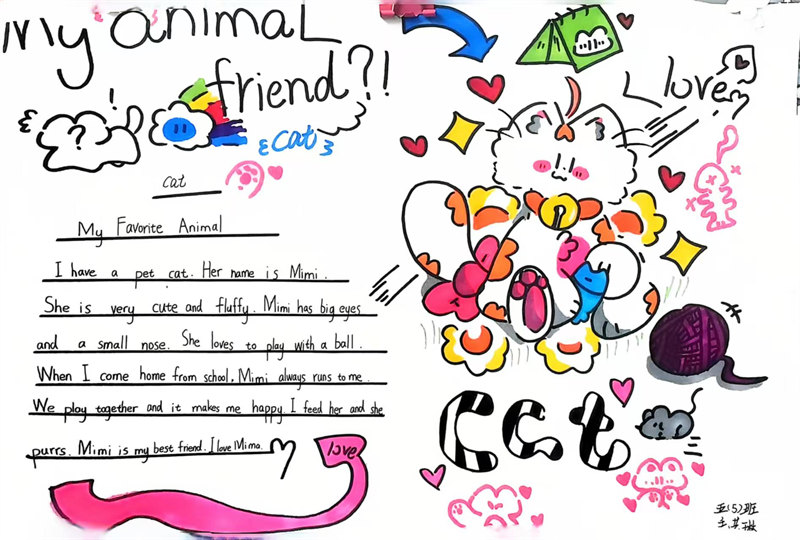 My animal
friend?!
?
!
{cat}
cat
My Favorite Animal
I have a pet cat. Her name is Mimi.
She is very cute and fluffy. Mimi has big eyes
and a small nose. She loves to play with a ball.
When I come home from school, Mimi always runs to me.
We play together and it makes me happy. I feed her and she
purrs. Mimi is my best friend. I love Mima.
love
I love
cat
五(5)班